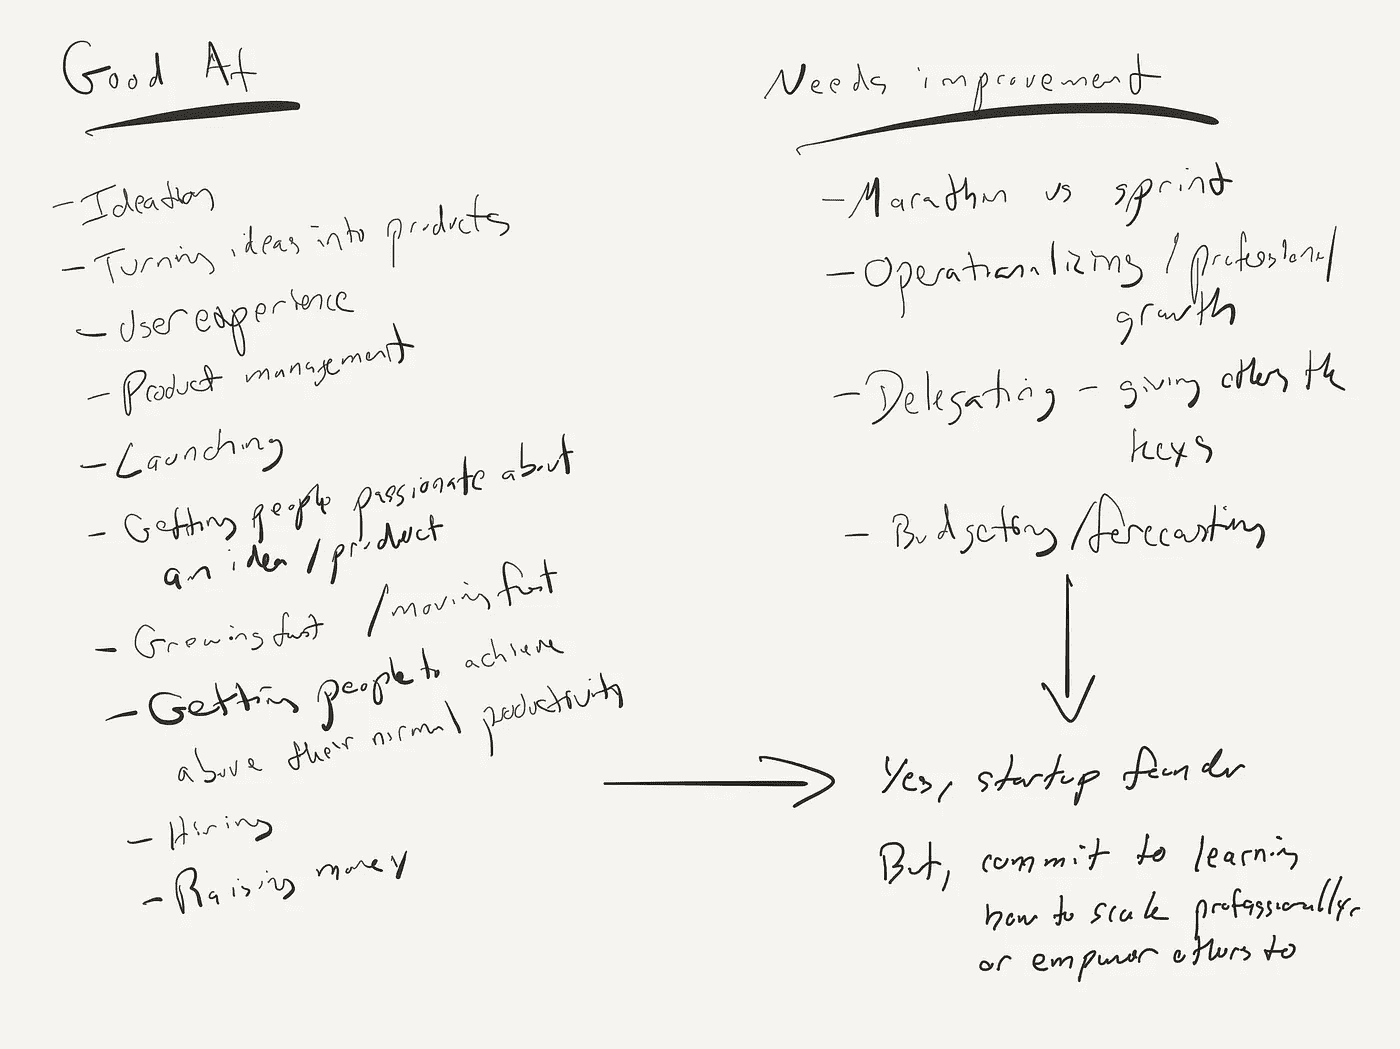 Good At
- Ideation
- Turning ideas into products
- User experience
- Product management
- Launching
- Getting people passionate about
an idea / product
- Growing fast / moving fast
- Getting people to achieve
above their normal productivity
- Hiring
- Raising money
Needs improvement
- Marathon vs sprint
- Operationalizing / professional
growth
- Delegating - giving others the
keys
- Budgeting / forecasting
Yes, startup founder
But, commit to learning
how to scale professionally,
or empower others to